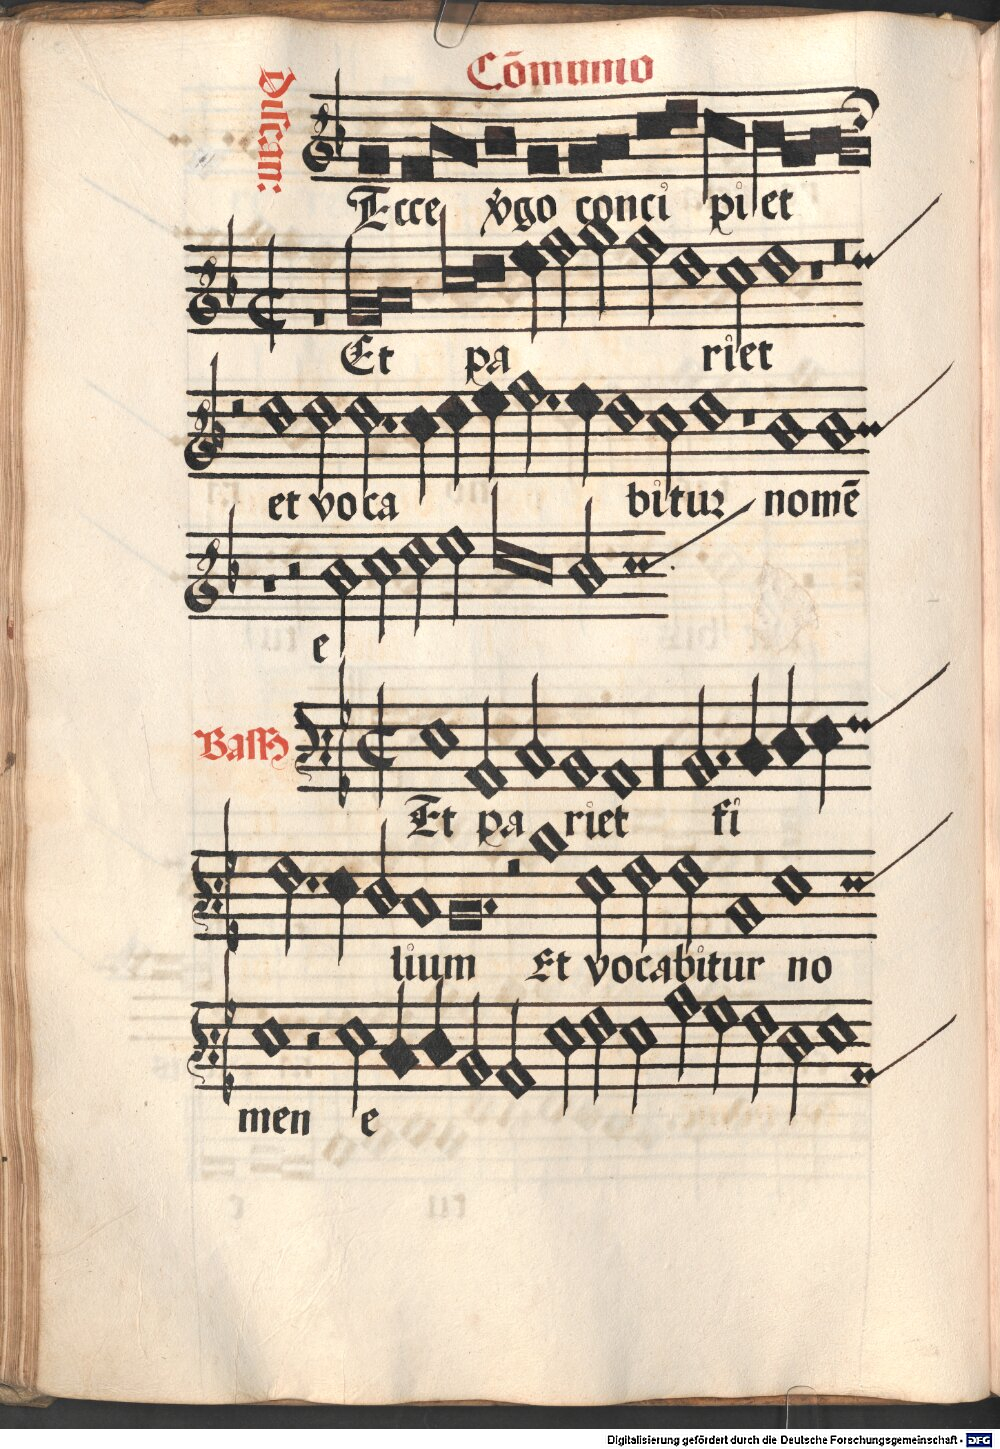 Cōmunio
Discan:
Ecce v̊go conci pi et
Et pa riet
et voca bitur nomē
e
Bassꝰ
Et pa riet fi
lium Et vocabitur no
men e
Digitalisierung gefördert durch die Deutsche Forschungsgemeinschaft - DFG